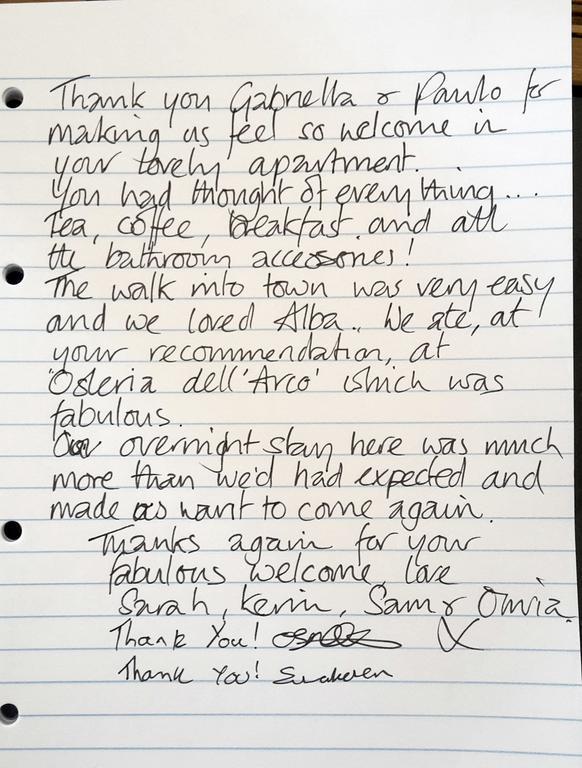 Thank you Gabriella & Paulo for
making us feel so welcome in
your lovely apartment.
You had thought of everything...
Tea, coffee, breakfast and all
the bathroom accessories!
The walk into town was very easy
and we loved Alba. We ate, at
your recommendation, at
'Osteria dell'Arco' which was
fabulous.
Our overnight stay here was much
more than we'd had expected and
made us want to come again.
Thanks again for your
fabulous welcome, love
Sarah, Kevin, Sam & Olivia.
Thank You! X
Thank You!